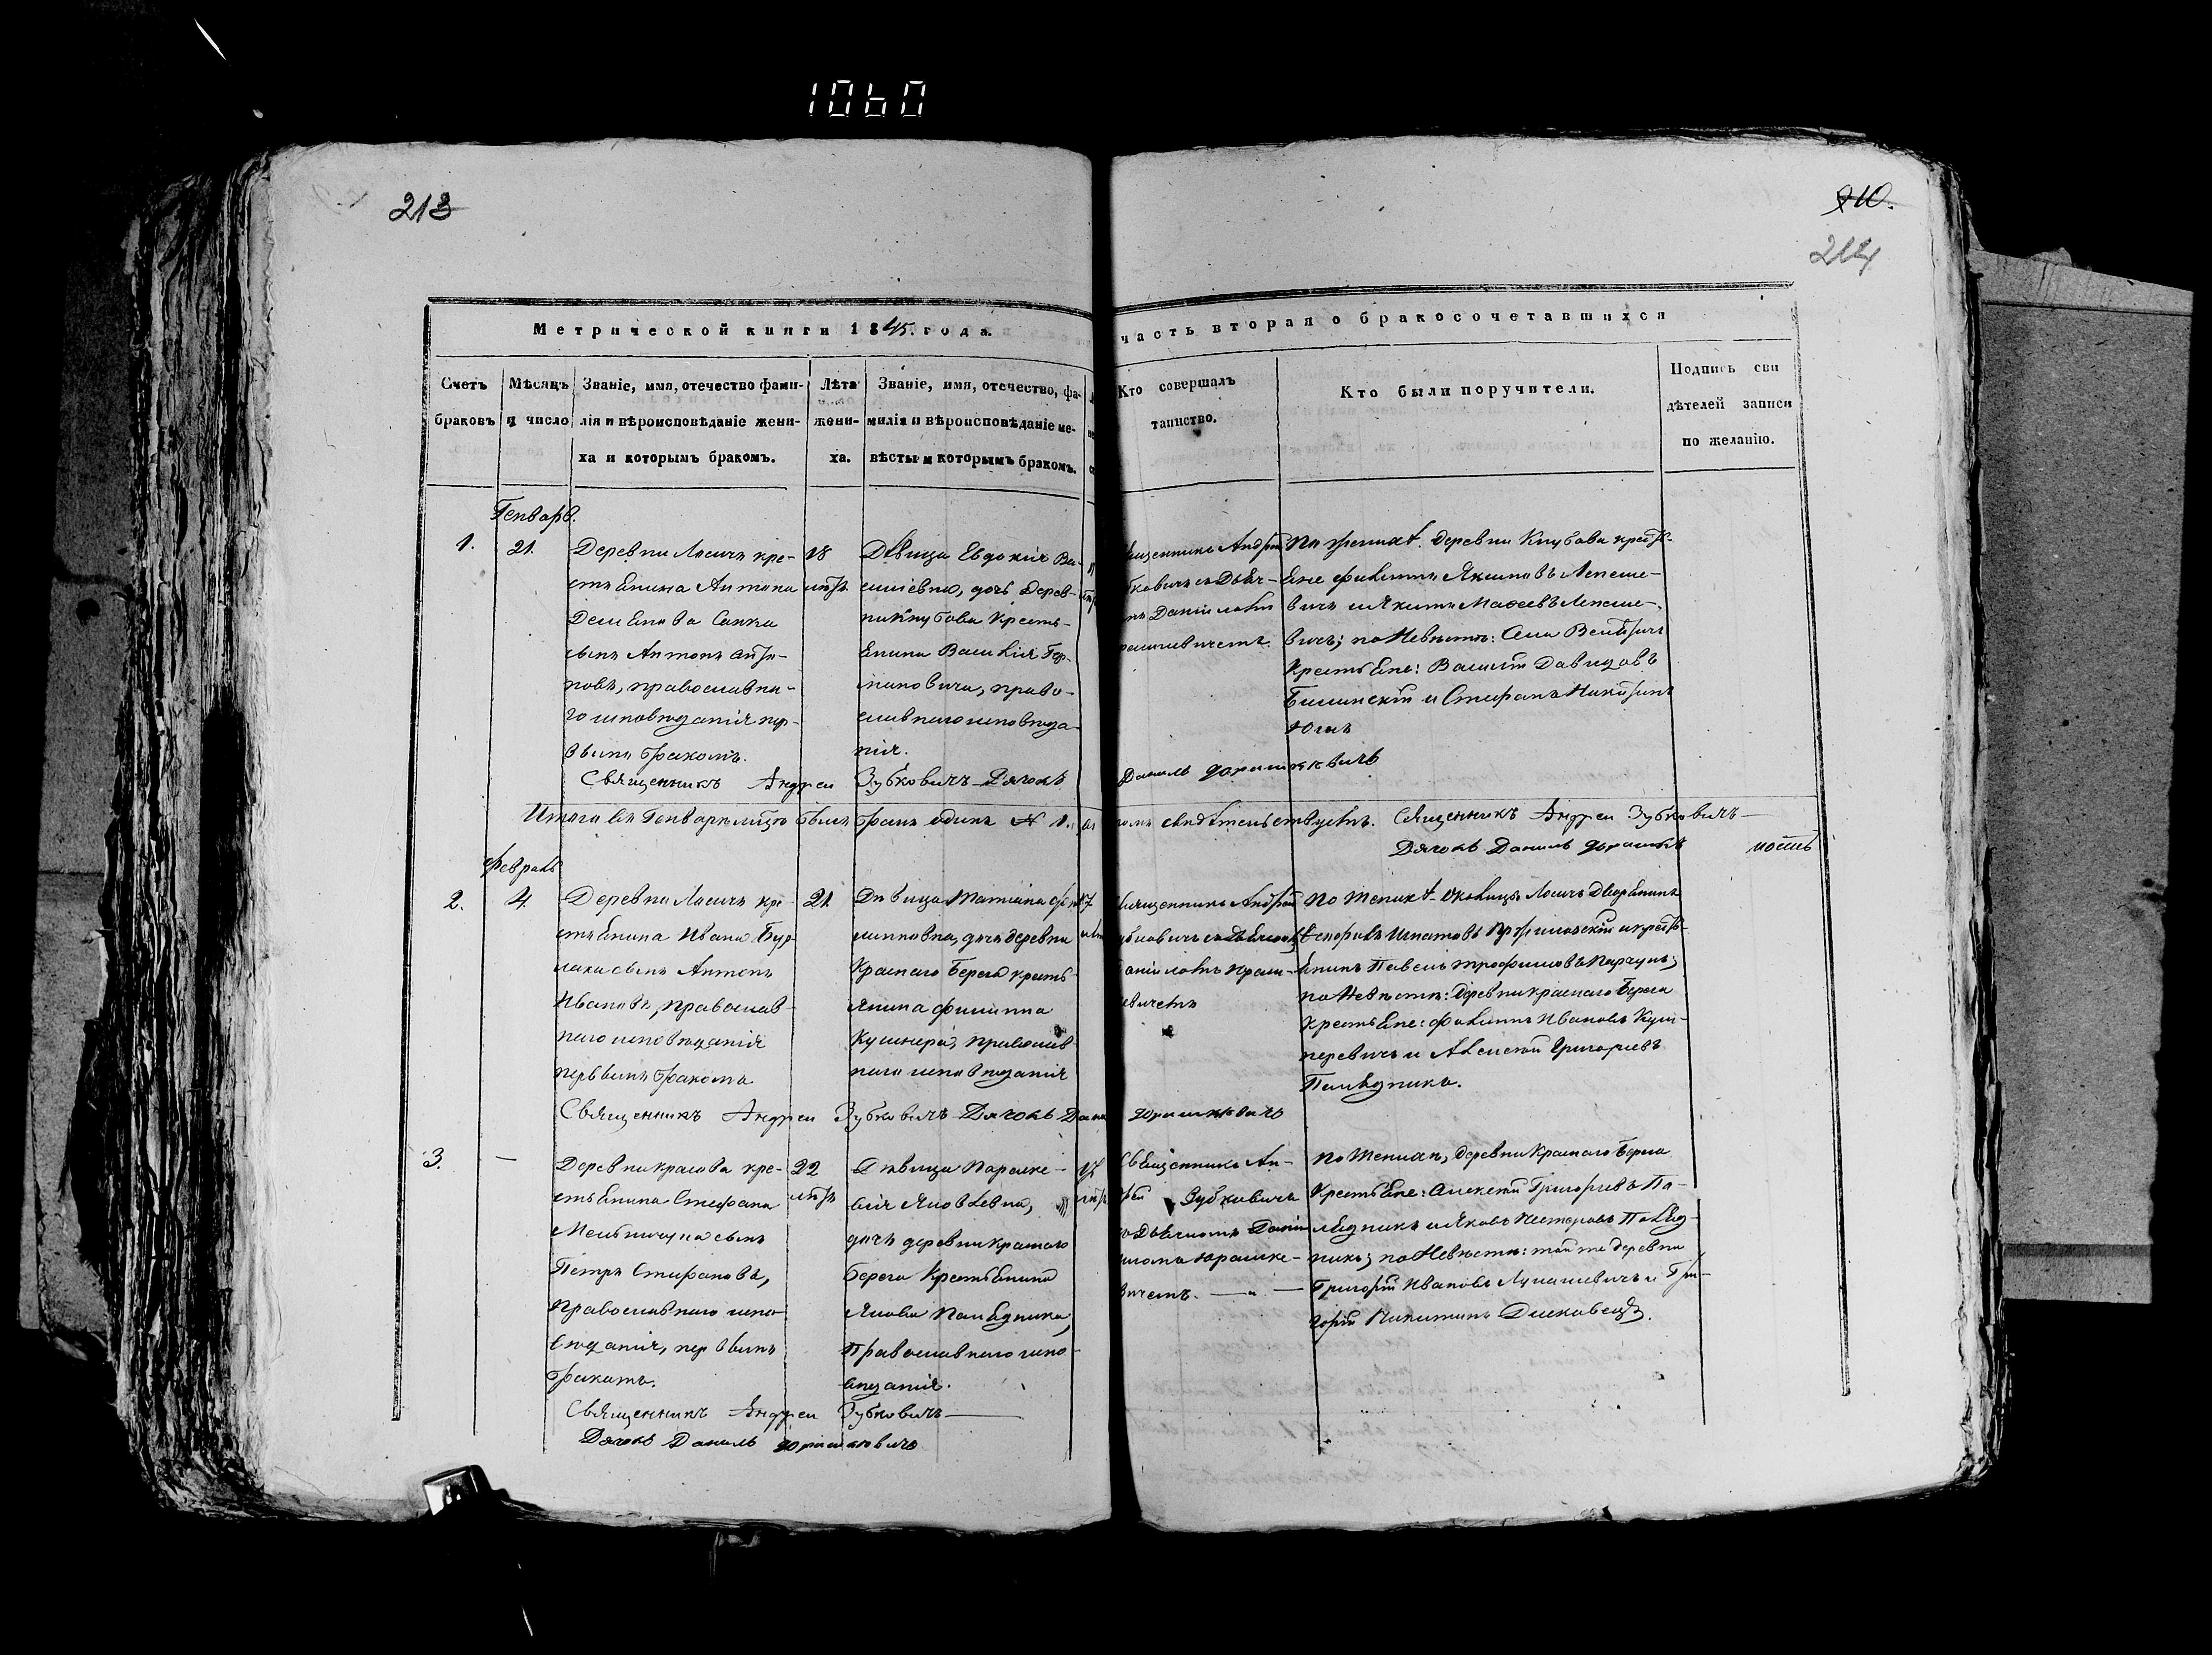 1060
213
210.
214
Метрической книги 1845. года.
часть вторая о бракосочетавшихся
Счетъ браковъ
Мѣсяцъ и число
Званіе, имя, отечество фами-
лія и вѣроисповѣданіе жени-
ха и которымъ бракомъ.
Лѣта
жени-
ха.
Званіе, имя, отечество, фа-
милія и вѣроисповѣданіе не-
вѣсты и которымъ бракомъ.
Кто совершалъ
таинство.
Кто были поручители.
Подпись сви
дѣтелей записи
по желанію.
Генварь.
1.
21.
Деревни Лосичъ кре-
стьянина Антона
Сачка
сынъ Антонъ Анто-
новъ, православна-
го исповѣданія пер-
вымъ бракомъ.
18
лѣтъ
Дѣвица Евдокія Ва-
силіевна, дочь дерев-
ни Кнубова кресть-
янина Василія Гер-
миновича, право-
славнаго исповѣда-
нія.
Андрей
По женихѣ. деревни Кнубова кресть-
яне Филиппъ Якимовъ Лепеше-
вичъ и Никита Маѳеевъ Лепеше-
вичъ; по невѣстѣ: села
крестьяне: Василій Давидовъ
и Стефанъ Никитинъ
Священникъ Андрей Зубковичъ Дячокъ
Даниль Юрашкевичъ
Итого въ Генварѣ мѣсяцѣ былъ бракъ одинъ № 1.
свидѣтельствуетъ. Священникъ Андрей Зубковичъ
Дячокъ Даниль
Февраль
2.
4.
Деревни Лосичъ кре-
стьянина Ивана Бур-
лаки сынъ Антонъ
Ивановъ, православ-
наго исповѣданія
первымъ бракомъ
21.
Дѣвица Татіана Фи-
липповна, дочь деревни
Краснаго Берега кресть-
янина Филиппа
Кушнера, православ-
наго исповѣданія
17
Священникъ Андрей
По женихѣ околицы Лосичъ дворянинъ
Игнатовъ и кресть-
янинъ Павелъ Трофимовъ
по невѣстѣ: деревни Краснаго Берега
крестьяне: Филиппъ Ивановъ Куш-
неревичъ и Алексѣй Григорьевъ
Полѣдникъ.
Священникъ Андрей Зубковичъ Дячокъ Даниль
Юрашкевичъ
3.
—
Деревни Красова кре-
стьянина Стефана
Мельничука сынъ
Петръ Стефановъ,
православнаго испо-
вѣданія, первымъ
бракомъ.
22
лѣтъ
Дѣвица Параске-
вія Яковлевна,
дочь деревни Краснаго
Берега крестьянина
Якова Полѣдника,
православнаго испо-
вѣданія.
17
лѣтъ
Священникъ Ан-
дрей Зубковичъ
съ Дьячкомъ Дані-
иломъ Юрашке-
вичемъ.
По женихѣ, деревни Краснаго Берега
крестьяне: Алексѣй Григорьевъ По-
лѣдникъ и Яковъ Нестеровъ Полѣд-
никъ; по невѣстѣ: той же деревни
Григорій Ивановъ Лукашевичъ и Гри-
горій Никитинъ Дисковецъ.
Священникъ Андрей Зубковичъ
Дячокъ Даниль Юрашкевичъ